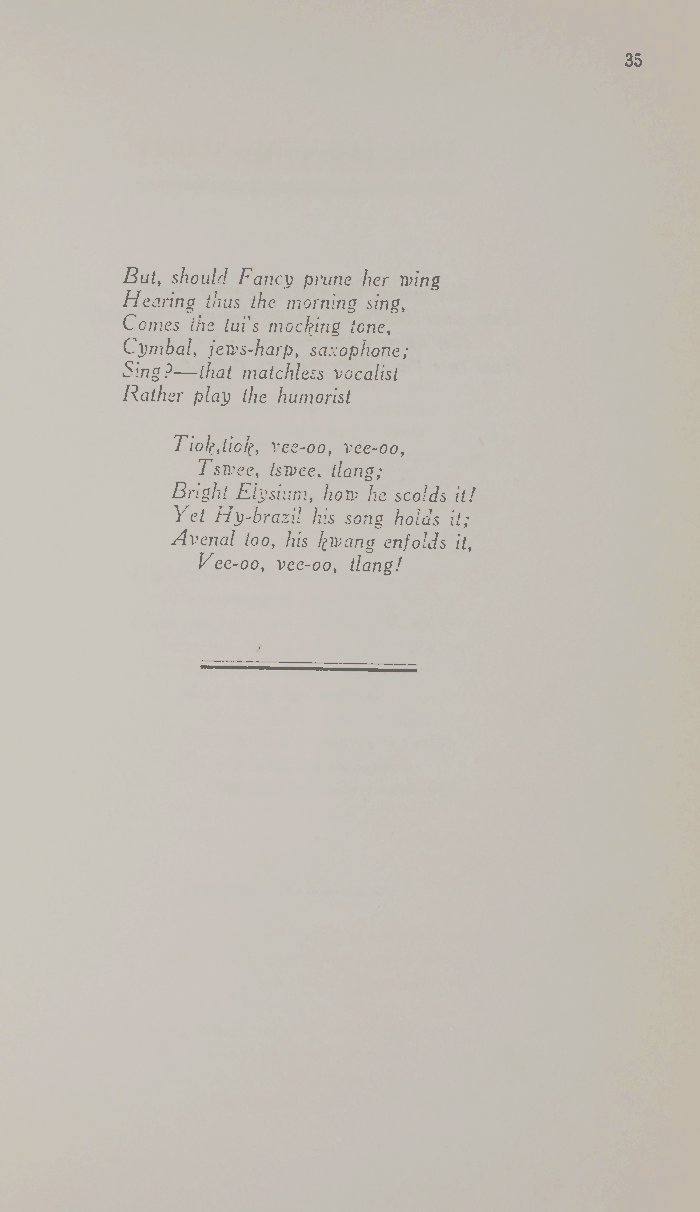 35
But, should Fancy prune her wing
Hearing thus the morning sing,
Comes the tui's mocking tone,
Cymbal, jews-harp, saxophone;
Sing?—that matchless vocalist
Rather play the humorist
Tiok,tiok, vee-oo, vee-oo,
Tswee, tswee. tlang;
Bright Elysium, how he scolds it!
Yet Hy-brazil his song holds it;
Avenal too, his kwang enfolds it,
Vee-oo, vee-oo, tlang!